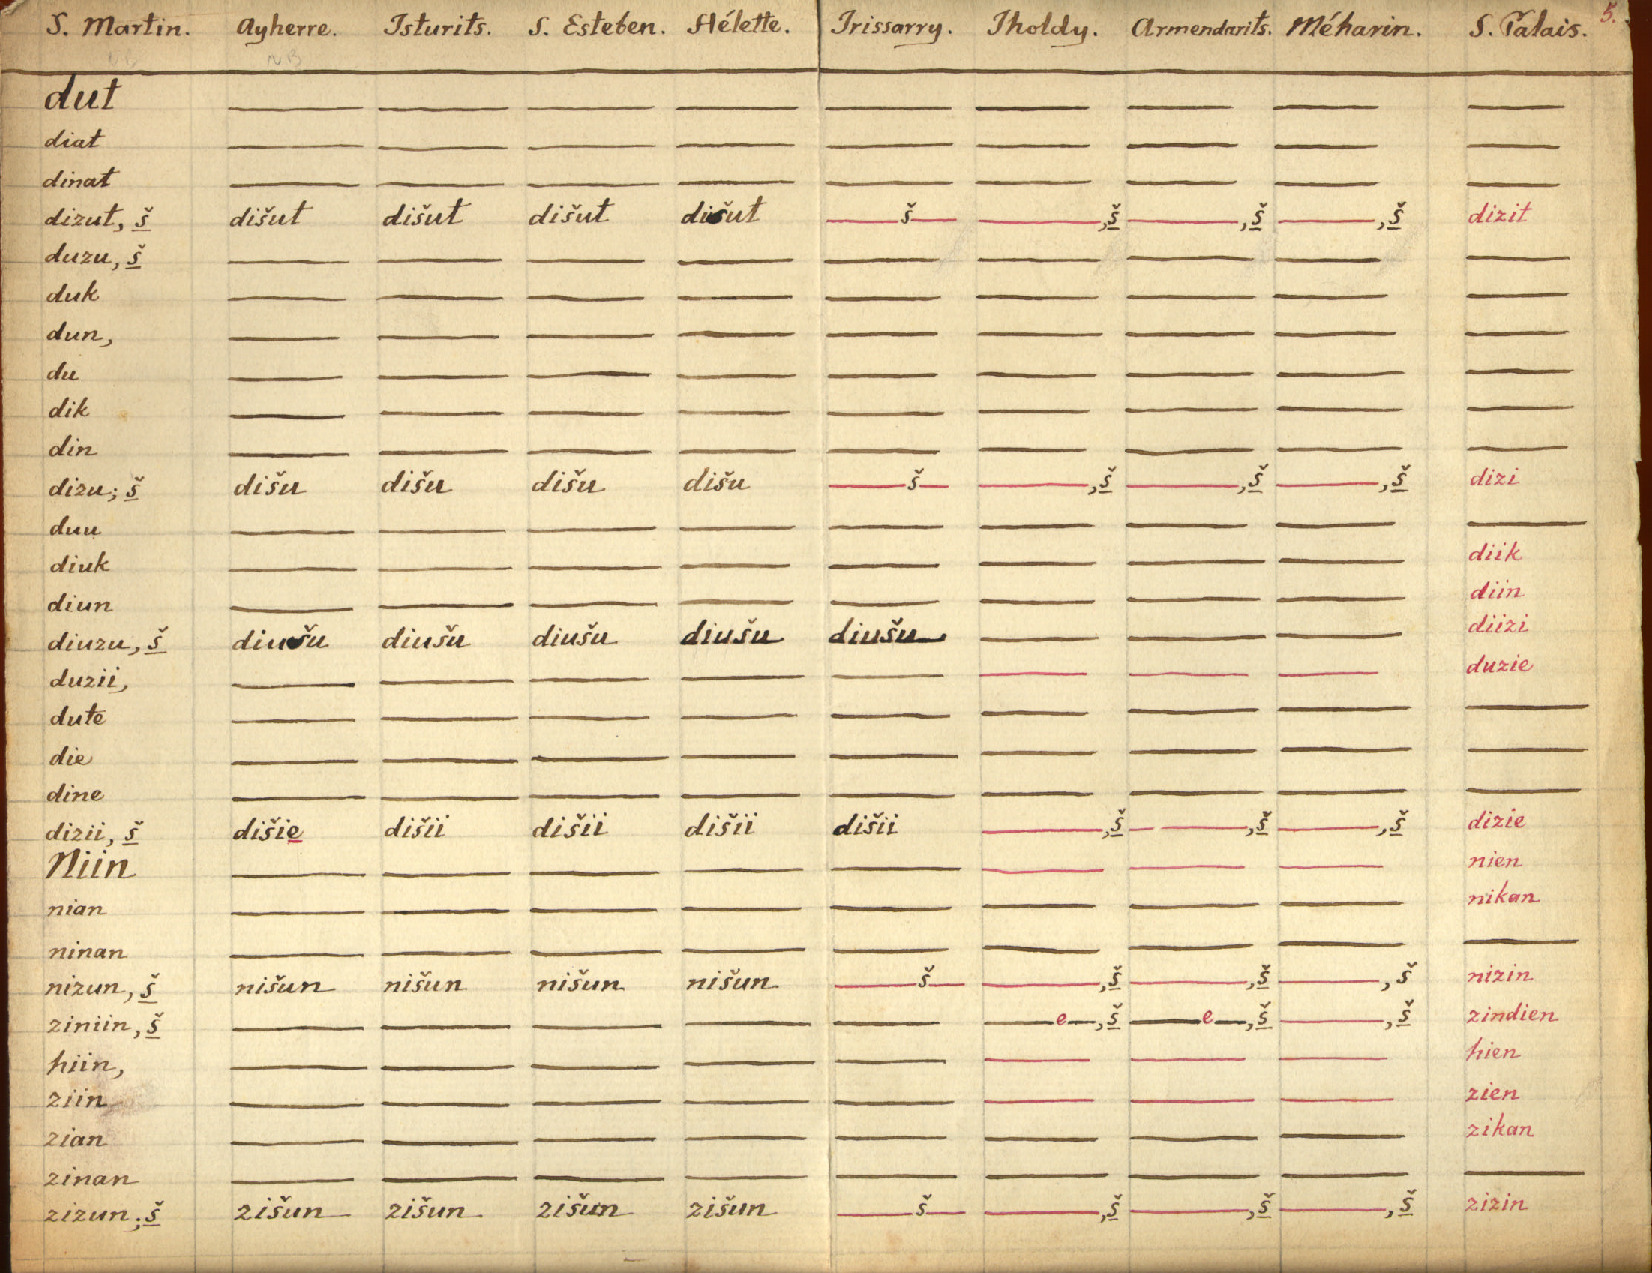 S. Martin. Ayherre. Isturits. S. Esteben. Hélette. Irissarry. Iholdy. Armendarits. Méharin. S. Palais. 5.
NB
dut — — — — — — — — —
diat — — — — — — — — —
dinat — — — — — — — — —
dizut, š dišut dišut dišut dišut —š— —,š —,š —,š dizit
duzu, š — — — — — — — — —
duk — — — — — — — — —
dun, — — — — — — — — —
du — — — — — — — — —
dik — — — — — — — — —
din — — — — — — — — —
dizu; š dišu dišu dišu dišu —š— —,š —,š —,š dizi
duu — — — — — — — — —
diuk — — — — — — — — diik
diun — — — — — — — — diin
diuzu, š diušu diušu diušu diušu diušu — — — diizi
duzii, — — — — — — — — duzie
dute — — — — — — — — —
die — — — — — — — — —
dine — — — — — — — — —
dizii, š dišie dišii dišii dišii dišii —,š —,š —,š dizie
Niin — — — — — — — — nien
nian — — — — — — — — nikan
ninan — — — — — — — — —
nizun, š nišun nišun nišun nišun —š— —,š —,š —,š nizin
ziniin, š — — — — — —e—,š —e—,š —,š zindien
hiin, — — — — — — — — hien
ziin — — — — — — — — zien
zian — — — — — — — — zikan
zinan — — — — — — — — —
zizun; š zišun zišun zišun zišun —š— —,š —,š —,š zizin